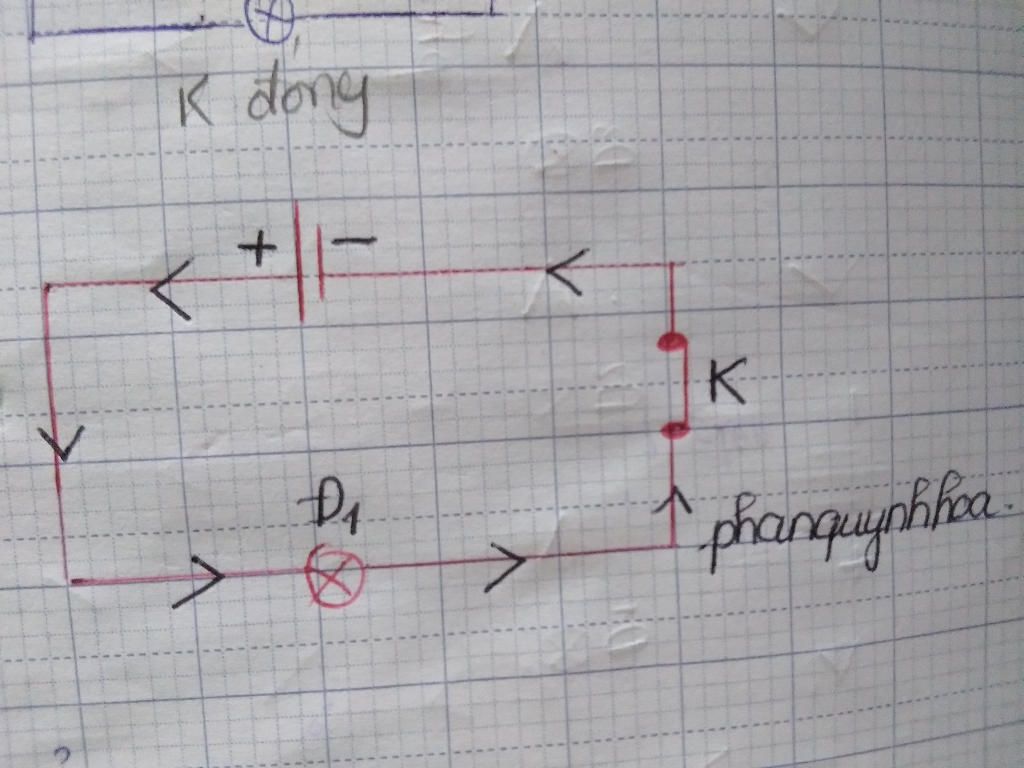 K đóng
+ −
K
Đ1
phanquynhhoa.